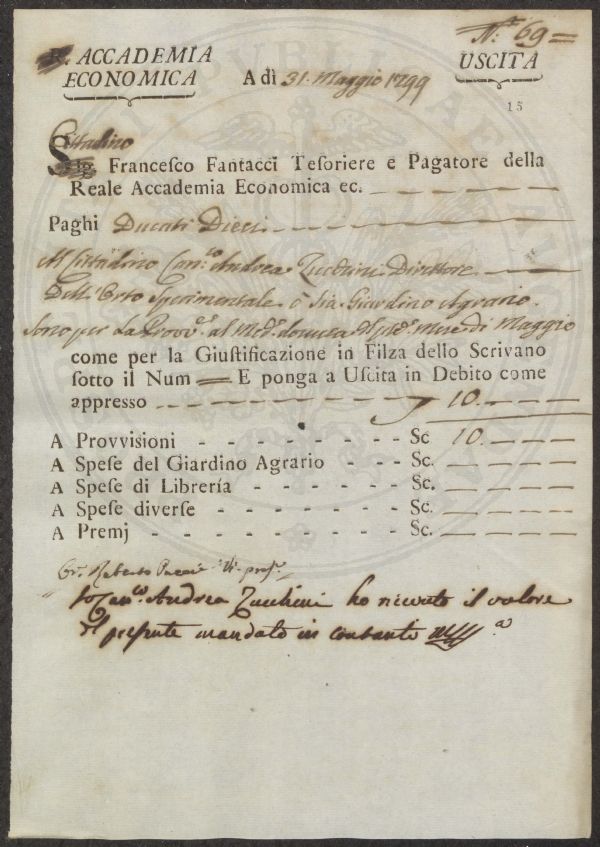 N.º 69
R. ACCADEMIA
ECONOMICA
USCITA
A dì 31. Maggio 1799
15
Cittadino
Sig. Francesco Fantacci Teſoriere e Pagatore della
Reale Accademia Economica ec.
Paghi Ducati Dieci
Al Cittadino Can.co Andrea Zucchini Direttore
Dell'Orto Sperimentale o sia Giardino Agrario
Sono per La Provv.e al Med.o dovuta il mese di Maggio
come per la Giuſtificazione in Filza dello Scrivano
ſotto il Num E ponga a Uſcita in Debito come
appresso 10.
A Provvisioni Sc 10.
A Speſe del Giardino Agrario Sc.
A Speſe di Librería Sc.
A Speſe diverſe Sc.
A Premj Sc.
Roberto Pucci
Io Can.co Andrea Zucchini ho ricevuto il valore
del presente mandato in contanti